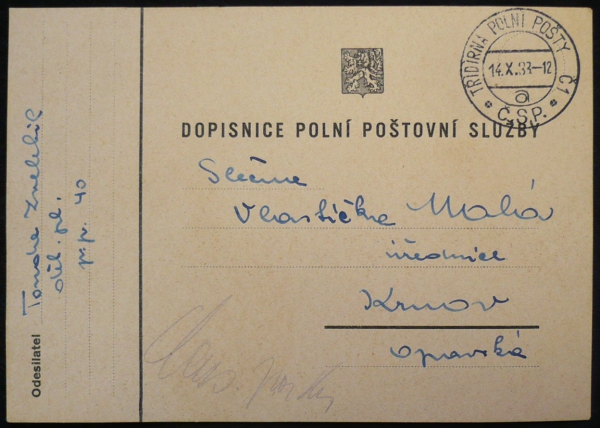 TŘÍDÍRNA POLNÍ POŠTY Č1
14.X.38-12
a
Č.S.P.
DOPISNICE POLNÍ POŠTOVNÍ SLUŽBY
Slečna
Vlastička Malá
úřednice
Krnov
Opavská
Odesilatel
děl. pl.
p.p. 40